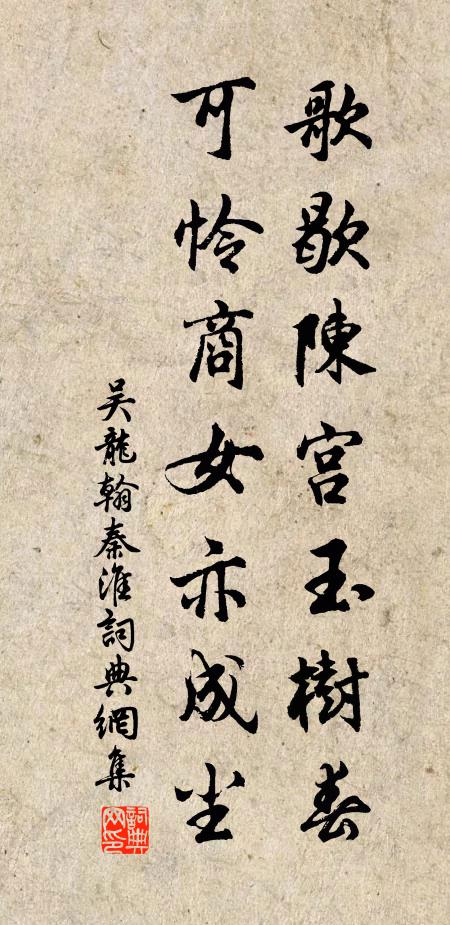 歌歇陳宮玉樹春
可怜商女亦成尘
吴龍翰秦淮詞典網集
詞典網印